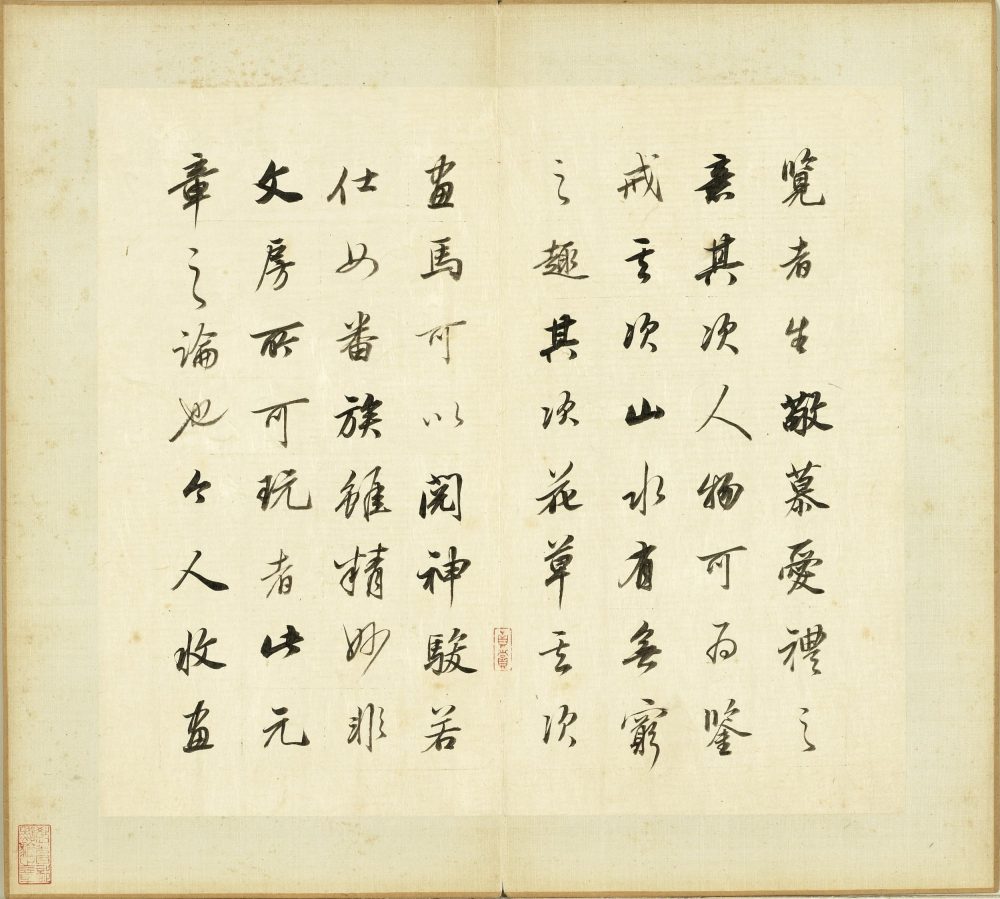 覽者生敬慕愛禮之
意其次人物可為鑒
戒其次山水有無窮
之趣其次花草其次
畫馬可以閱神駿若
仕女番族雖精妙非
文房所可玩者此元
章之論也今人收畫